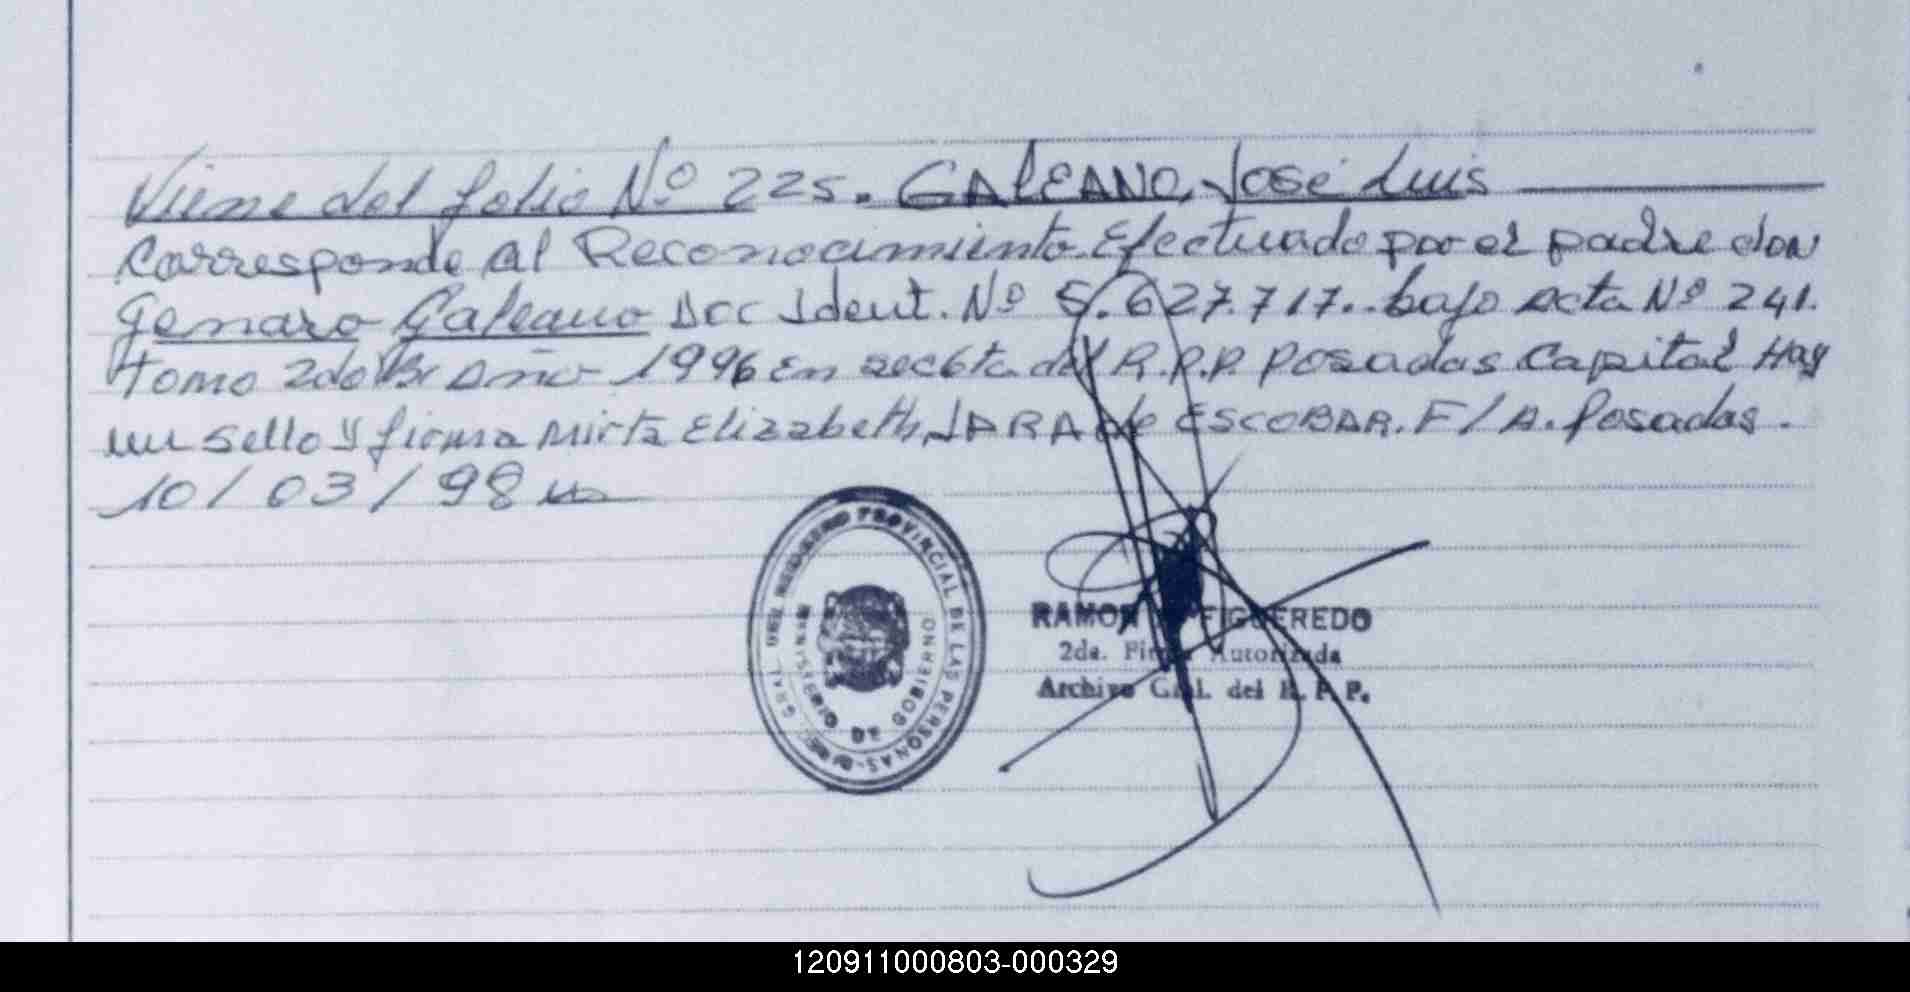 Viene del folio Nº 225. GALEANO, José Luis
Corresponde al Reconocimiento Efectuado por el padre don
Genaro Galeano Doc Ident. Nº 5.627.717.. bajo acta Nº 241.
Tomo 2do Año 1996 En secc 6ta del R.P.P. Posadas Capital Hay
un sello y firma Mirta Elizabeth JARA de ESCOBAR. F/A. Posadas.
10/03/98
DIR. GRAL. DEL REGISTRO PROVINCIAL DE LAS PERSONAS
MINISTERIO DE GOBIERNO
RAMON FIGUEREDO
2da. Firma Autorizada
Archivo Gral. del R. P. P.
120911000803-000329